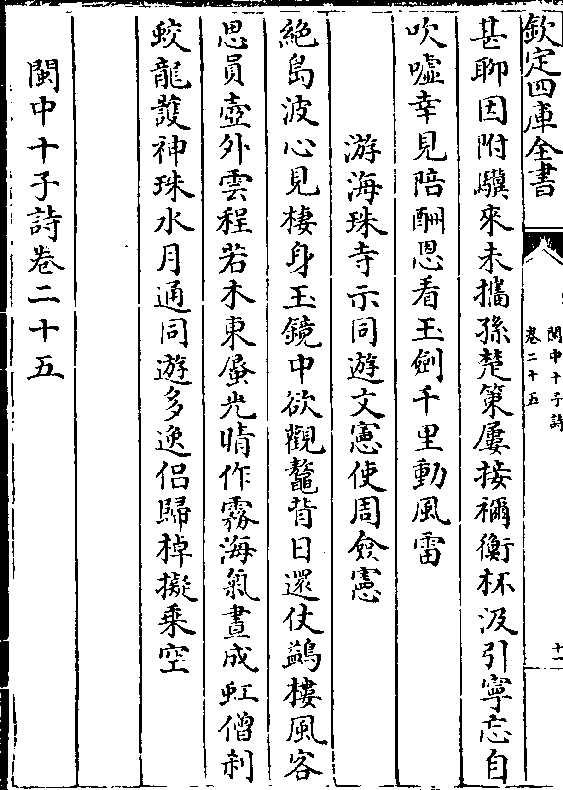 欽定四庫全書
閩中十子詩
卷二十五
十一
甚聊因附驥來未攜孫楚策屢接禰衡杯汲引寧忘自
吹噓幸見陪酬恩看玉劍千里動風雷
游海珠寺示同遊文憲使周僉憲
絶島波心見棲身玉鏡中欲觀鼇背日還仗鷁樓風客
思員壺外雲程若木東蜃光晴作霧海氣晝成虹僧刹
蛟龍護神珠水月通同遊多逸侣歸棹擬乗空
閩中十子詩卷二十五